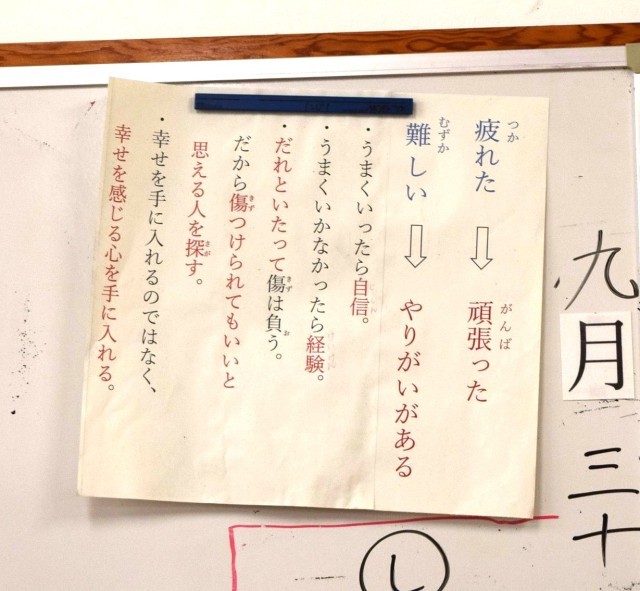 九月三十
疲れた ⇨ 頑張った
難しい ⇨ やりがいがある
・うまくいったら自信。
・うまくいかなかったら経験。
・だれといたって傷は負う。
だから傷つけられてもいいと
思える人を探す。
・幸せを手に入れるのではなく、
幸せを感じる心を手に入れる。
し